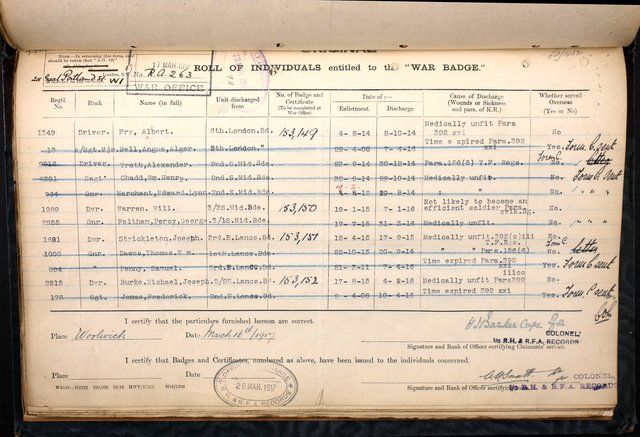 ORIGINAL
NOTE.—In returning this form, care should be taken that "A.G. 10."
Great Portland St. W1
17 MAR. 1917
No. R.A. 263
WAR OFFICE
ROLL OF INDIVIDUALS entitled to the "WAR BADGE."
Regtl. No. Rank Name (in full) Unit discharged from No. of Badge and Certificate (To be completed at War Office) Date of :— Enlistment Discharge Cause of Discharge (Wounds or Sickness and para. of K.R.) Whether served Overseas (Yes or No)
1349 Driver. Fry, Albert. 6th.London.Bd. 153,149 4-8-14 8-10-14 Medically unfit Para 392 xvi No.
13 A/Sgt.Mjr. Bell, Angus, Alger. 5th.London." 29-4-08 7-4-16 Time expired Para.392 xxi Yes. Form C. sent
2818 Driver. Troth, Alexander. 2nd.S.Mid.Bde. 23-9-14 30-12-14 Para.156(5) T.F. Regs. No. Form C. letter
2701 Segt' Chadd, Wm.Henry. 2nd.S.Mid.Bde. 30-9-14 29-10-14 Medically unfit. No. Form C. sent
984 Gnr. Marchant, Edward, Lyon. 2nd.S.Mid.Bde. 29-8-14 " " No. " " "
1989 Dvr. Warren. Will. 3/3S.Mid.Bde. 153,150 19-1-15 7-1-16 Not likely to become an efficient soldier Para No.
2955 Gnr. Feltham, Percy, George. 3/1S.Mid.Bde. 17-7-15 31-3-16 Medically unfit. No. " " "
1681 Dvr. Strickleton, Joseph. 3rd.E.Lancs.Bd. 153,151 12-4-15 17-9-15 Medically unfit.392(c)iii No.
1000 Gnr. Dawes, Thomas, Wm. 1st.E.Lancs.Bd. 22-10-13 20-9-14 " T.F.Res. Para.156(6) No. Form C. letter
894 " Penny, Samuel. 3rd.E.Lancs.Bd. 21-3-11 7-4-16 Time expired Para 392 xxi Yes. Form C. sent
2815 Dvr. Burke, Michael, Joseph. 2/2E.Lancs.Bd. 153,152 17-8-15 4-2-16 Medically unfit Para392 No.
175 Sgt. Jones, Frederick. 2nd.E.Lancs.Bd. 2-4-08 10-4-16 Time expired 392 xxi Yes. Form C. sent
I certify that the particulars furnished herein are correct.
Place Woolwich Date March 16th/1917
COLONEL,
i/c R.H. & R.F.A. RECORDS
Signature and Rank of Officer certifying Claimants' service.
I certify that Badges and Certificates, numbered as above, have been issued to the individuals concerned.
Place Date
26 MAR. 1917
R.H. & R.F.A. RECORDS
COLONEL,
i/c R.H. & R.F.A. RECORDS
Signature and Rank of Officer certifying